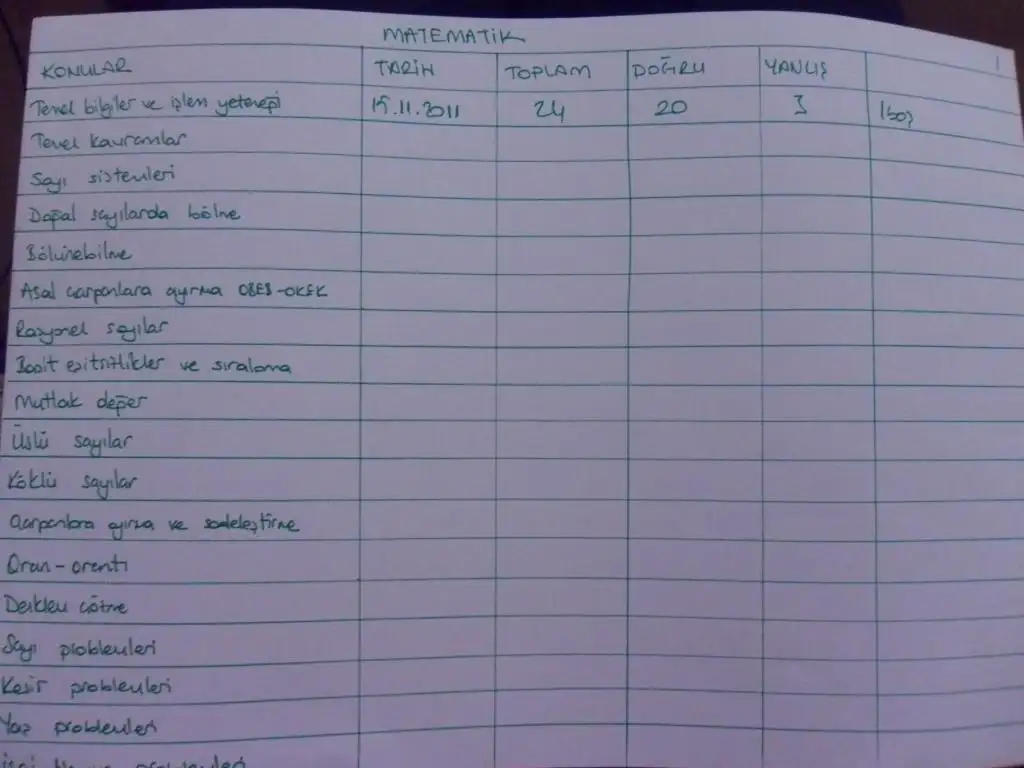 MATEMATİK
1
KONULAR TARİH TOPLAM DOĞRU YANLIŞ
Temel bilgiler ve işlem yeteneği 15.11.2011 24 20 3 1 boş
Temel kavramlar
Sayı sistemleri
Doğal sayılarda bölme
Bölünebilme
Asal çarpanlara ayırma OBEB-OKEK
Rasyonel sayılar
Basit eşitsizlikler ve sıralama
Mutlak değer
Üslü sayılar
Köklü sayılar
Çarpanlara ayırma ve sadeleştirme
Oran-orantı
Denklem çözme
Sayı problemleri
Kesir problemleri
Yaş problemleri
problemleri